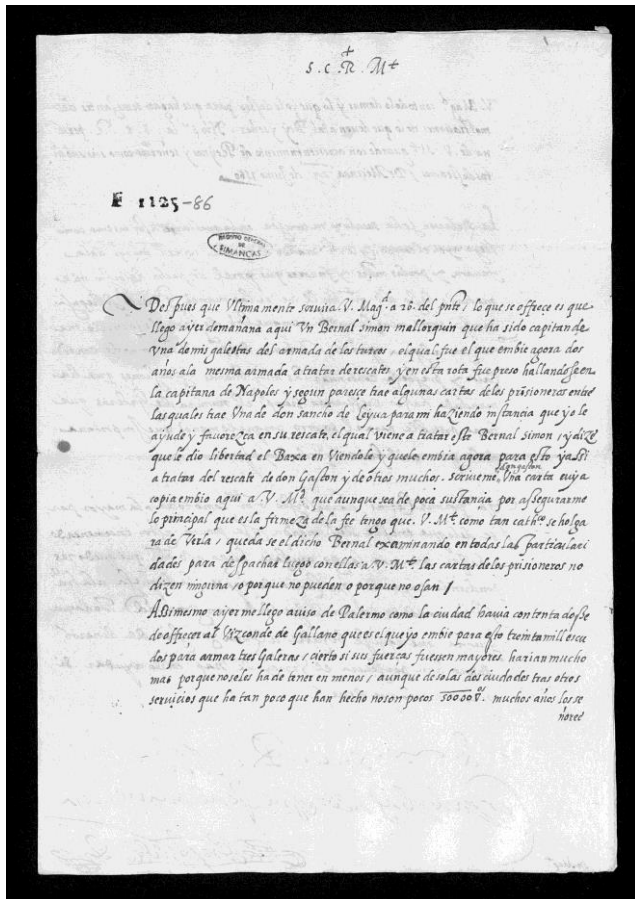 +
S. C. R. Mt
E 1125-86
ARCHIVO GENERAL
DE
SIMANCAS
Despues que Ultimamente scrivi a V. Magd. a 26. del pnte, lo que se offrece es que
llego ayer demañana aqui Un Bernal Simon mallorquin que ha sido capitan de
Una de mis galeotas del armada de los turcos, el qual fue el que embie agora dos
años a la mesma armada a tratar de rescates, y en esta rota fue preso hallandose en
la capitana de Napoles y segun paresce trae algunas cartas de los prisioneros entre
las quales trae Una de don sancho de Leyva para mi haziendo instancia que yo le
ayude y favorezca en su rescate, el qual viene a tratar este Bernal Simon, y dize
que le dio libertad el Baxa en Viendole y que le embia agora para esto y assi
a tratar del rescate de don Gaston y de otros muchos. Scrivieme don gaston Una carta cuya
copia embio aqui a V. Mt. que aunque sea de poca sustancia por assegurarme
lo principal que es la firmeza de la fee tengo que. V. Mt. como tan cathco. se holga
ra de Verla, queda se el dicho Bernal examinando en todas las particulari
dades para despachar luego con ellas a V. Mt. las cartas de los prisioneros no
dizen ninguna, o porque no pueden o porque no osan /
Assimesmo ayer me llego aviso de Palermo como la ciudad havia contentadosse
do offrecer al Vizconde de Gallano que es el que yo embie para esto treinta mill escu
dos para armar tres Galeras, cierto si sus fuerças fuessen mayores, harian mucho
mas porque no se les ha de tener en menos, aunque de solas dos ciudades tras otros
servicios que ha tan poco que han hecho no son pocos 50000 V. muchos años los se
ñores